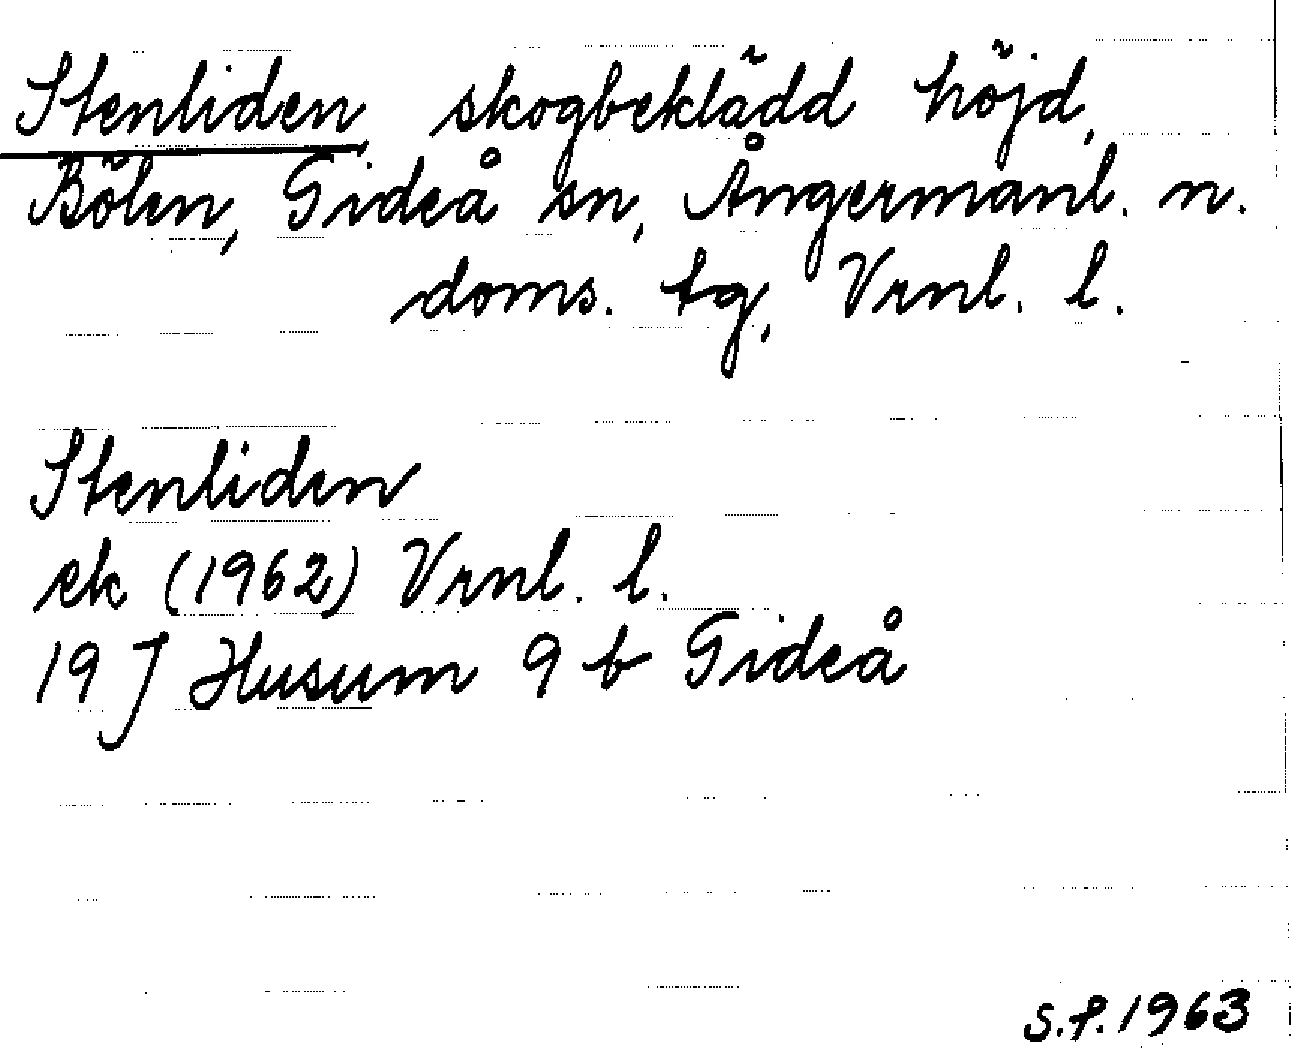 Stenliden, skogbeklädd höjd,
Bölen, Gideå sn, Ångermanl. n.
doms. tg, Vrnl. l.
Stenliden
ek (1962) Vrnl. l.
19 J Husum 9 b Gideå
S.P. 1963